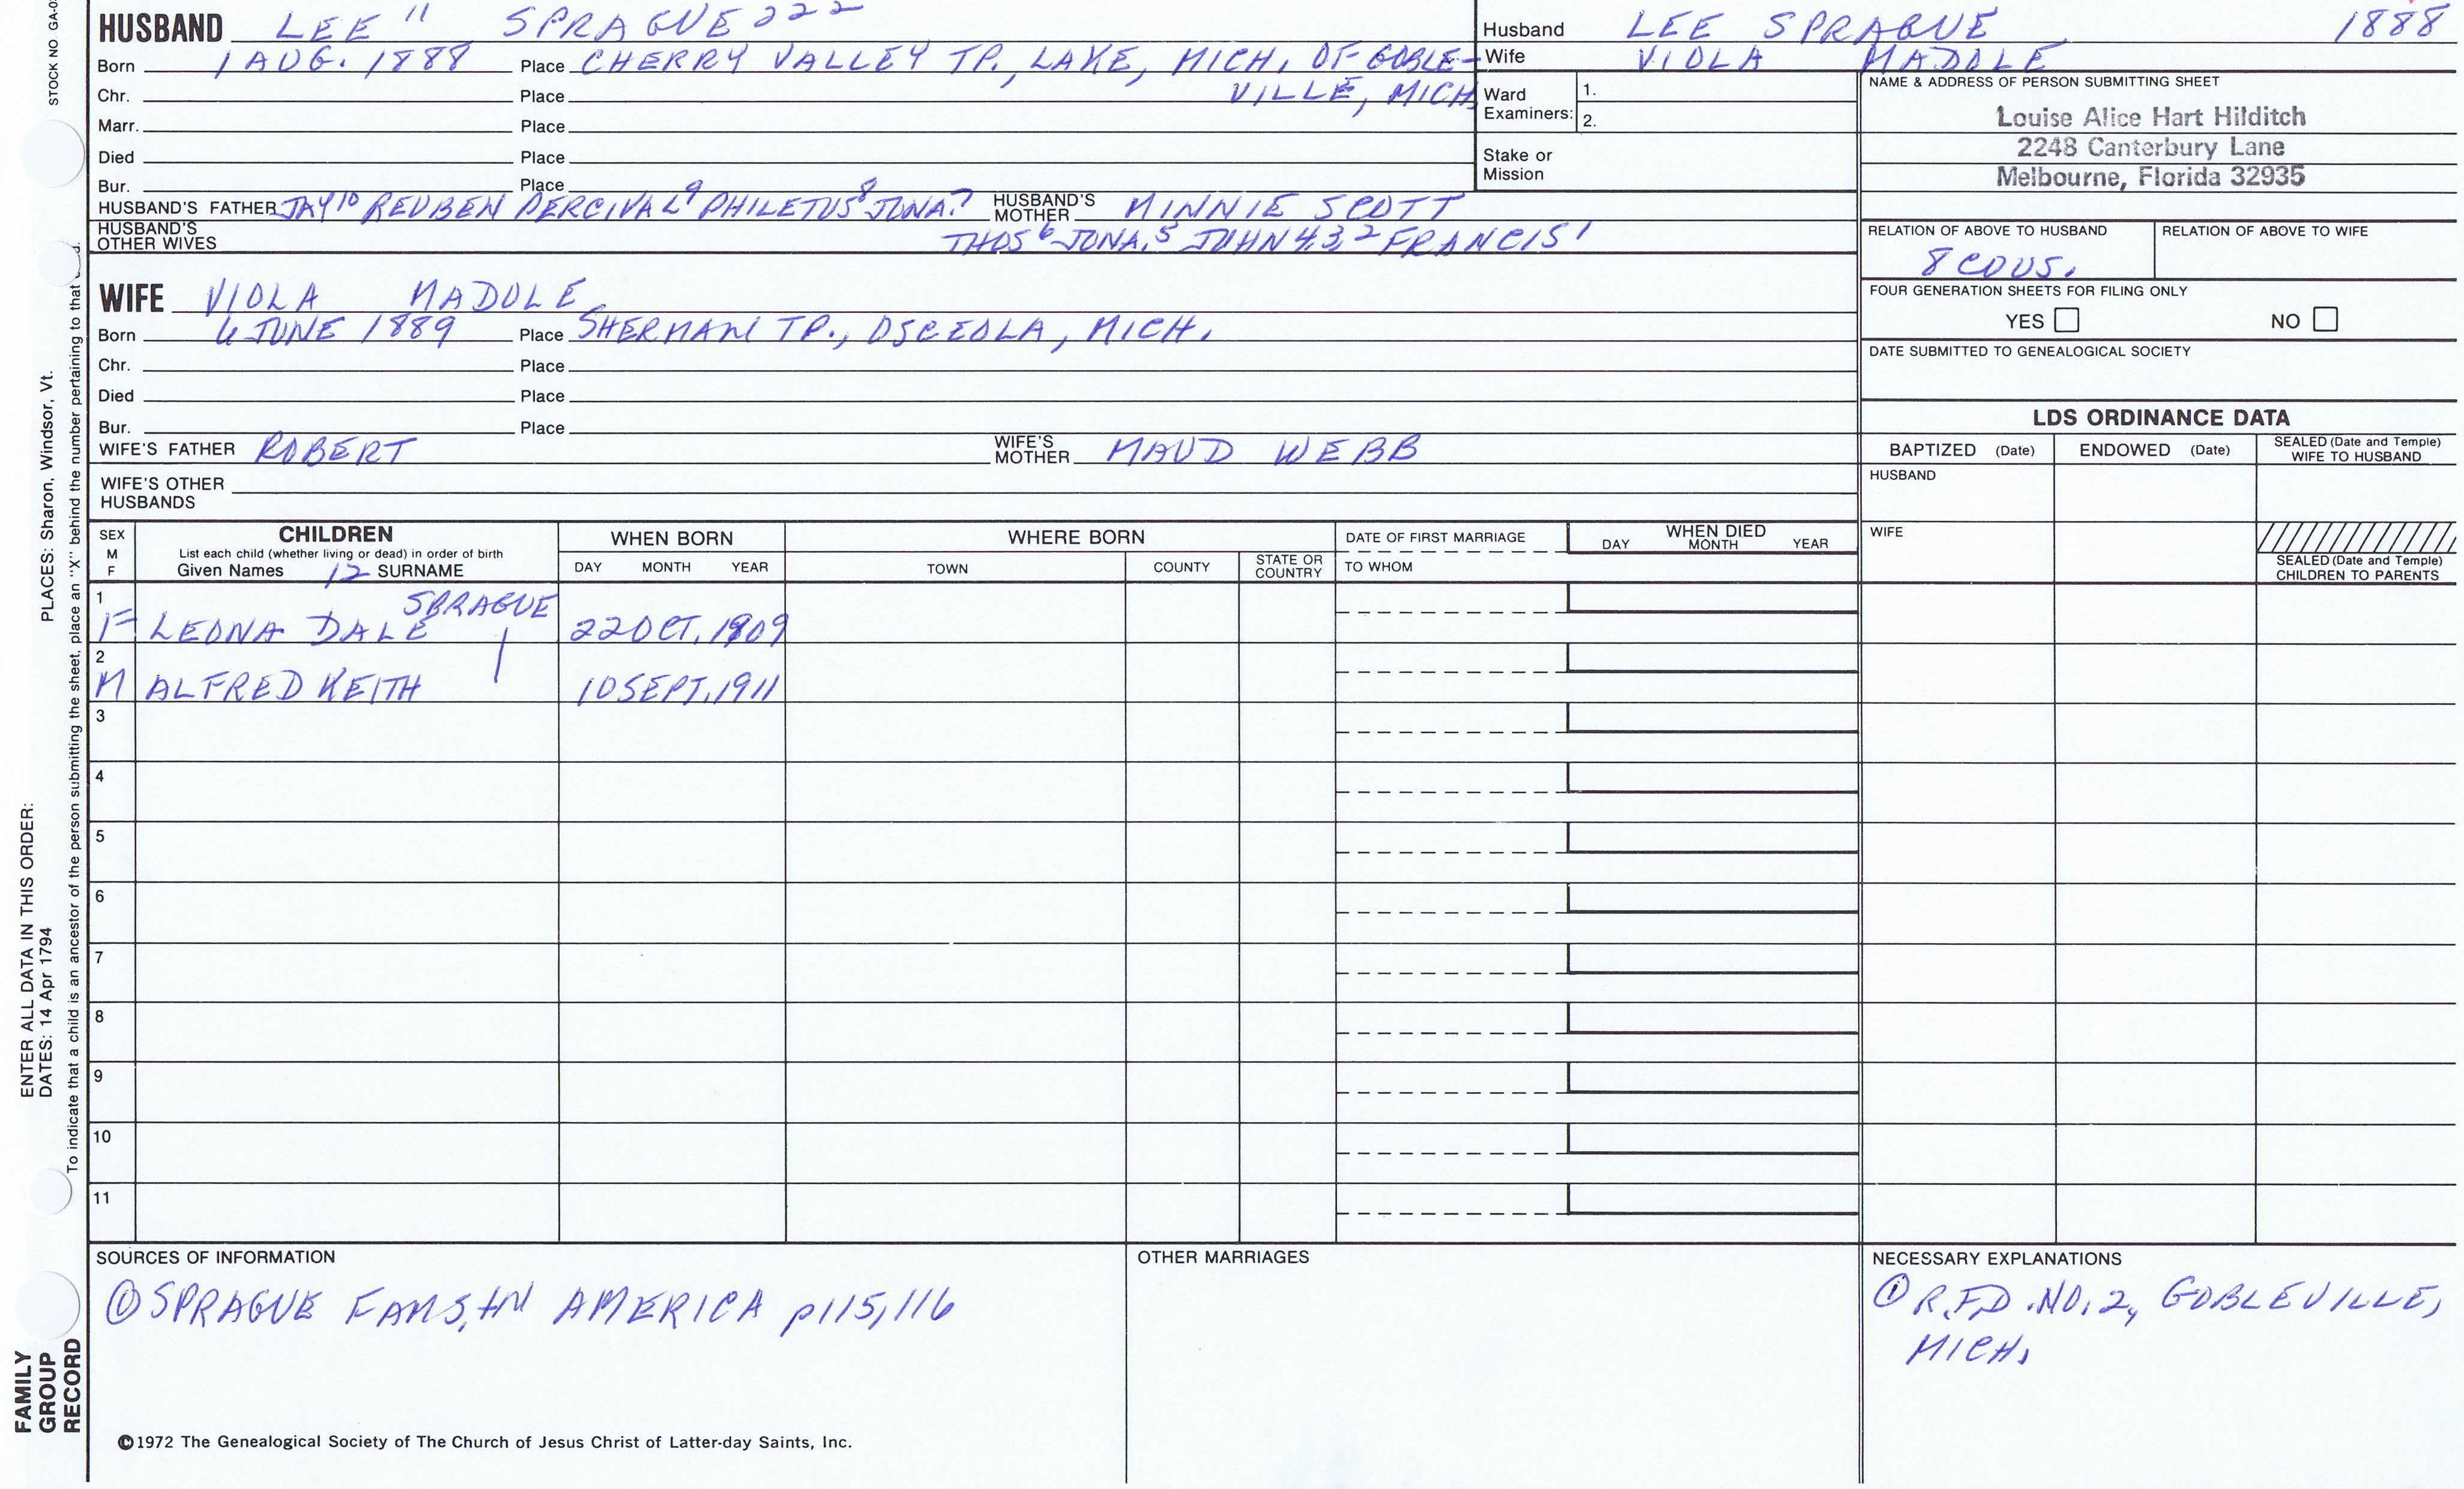 STOCK NO GA-0
HUSBAND LEE 11 SPRAGUE 222
Born 1 AUG. 1888 Place CHERRY VALLEY TP., LAKE, MICH, OF GOBLE-
Chr. Place VILLE, MICH
Marr. Place
Died Place
Bur. Place
HUSBAND'S FATHER JAY10 REUBEN PERCIVAL9 PHILETUS8 JONA.7 HUSBAND'S MOTHER MINNIE SCOTT
HUSBAND'S OTHER WIVES THOS6 JONA.5 JOHN4,3,2 FRANCIS1
WIFE VIOLA MADOLE
Born 6 JUNE 1889 Place SHERMAN TP., OSCEOLA, MICH.
Chr. Place
Died Place
Bur. Place
WIFE'S FATHER ROBERT WIFE'S MOTHER MAUD WEBB
WIFE'S OTHER HUSBANDS
Husband LEE SPRAGUE 1888
Wife VIOLA MADOLE
Ward Examiners: 1.
2.
Stake or Mission
NAME & ADDRESS OF PERSON SUBMITTING SHEET
Louise Alice Hart Hilditch
2248 Canterbury Lane
Melbourne, Florida 32935
RELATION OF ABOVE TO HUSBAND RELATION OF ABOVE TO WIFE
8 COUS.
FOUR GENERATION SHEETS FOR FILING ONLY
YES NO
DATE SUBMITTED TO GENEALOGICAL SOCIETY
LDS ORDINANCE DATA
BAPTIZED (Date) ENDOWED (Date) SEALED (Date and Temple) WIFE TO HUSBAND
HUSBAND
WIFE
SEALED (Date and Temple)
CHILDREN TO PARENTS
SEX M F
CHILDREN
List each child (whether living or dead) in order of birth
Given Names 12 SURNAME
WHEN BORN
DAY MONTH YEAR
WHERE BORN
TOWN COUNTY STATE OR COUNTRY
DATE OF FIRST MARRIAGE
TO WHOM
WHEN DIED
DAY MONTH YEAR
1 SPRAGUE
F LEONA DALE 22 OCT, 1909
2
M ALFRED KEITH 10 SEPT, 1911
3
4
5
6
7
8
9
10
11
SOURCES OF INFORMATION
① SPRAGUE FAMS, IN AMERICA p115,116
OTHER MARRIAGES
NECESSARY EXPLANATIONS
① R.F.D. NO. 2, GOBLEVILLE,
MICH,
©1972 The Genealogical Society of The Church of Jesus Christ of Latter-day Saints, Inc.
PLACES: Sharon, Windsor, Vt.
To indicate that a child is an ancestor of the person submitting the sheet, place an "X" behind the number pertaining to that
ENTER ALL DATA IN THIS ORDER:
DATES: 14 Apr 1794
FAMILY
GROUP
RECORD